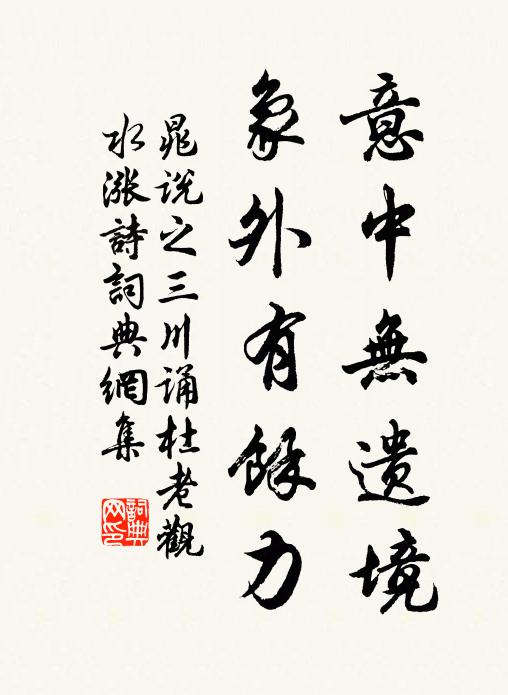 意中無遺境
象外有餘力
晁說之三川誦杜老觀
水漲詩詞典網集
詞典
网印